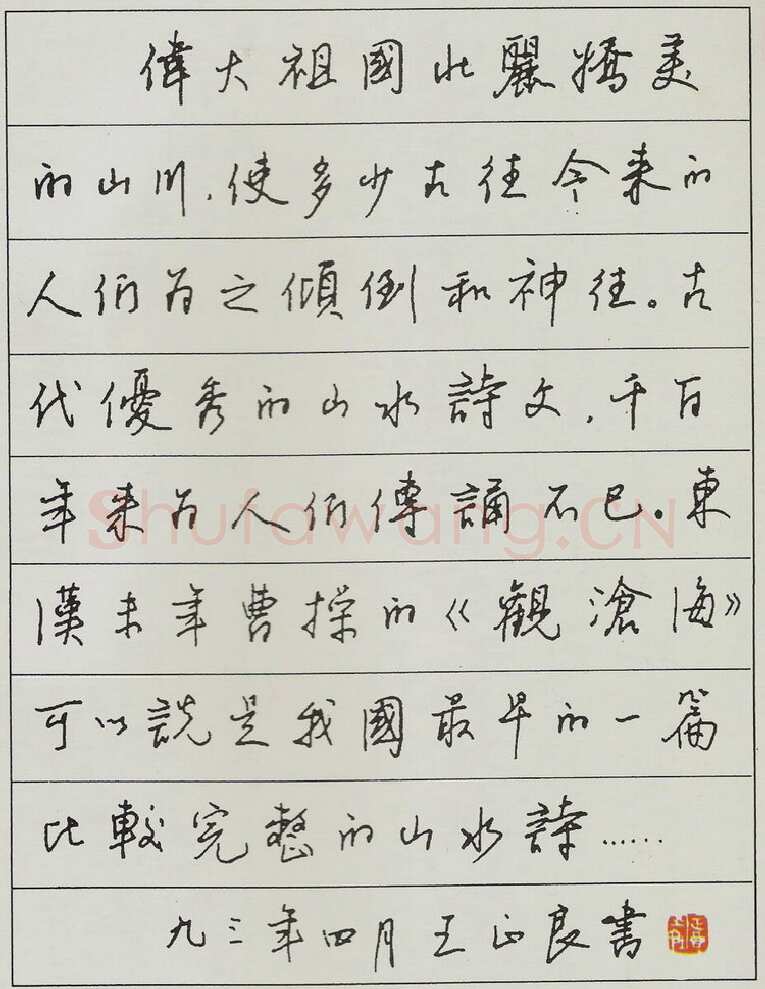 偉大祖國壯麗嬌美
的山川，使多少古往今來的
人們為之傾倒和神往。古
代優秀的山水詩文，千百
年來為人們傳誦不已。東
漢末年曹操的《觀滄海》
可以說是我國最早的一篇
比較完整的山水詩……
九三年四月王正良書
Shufawang.CN